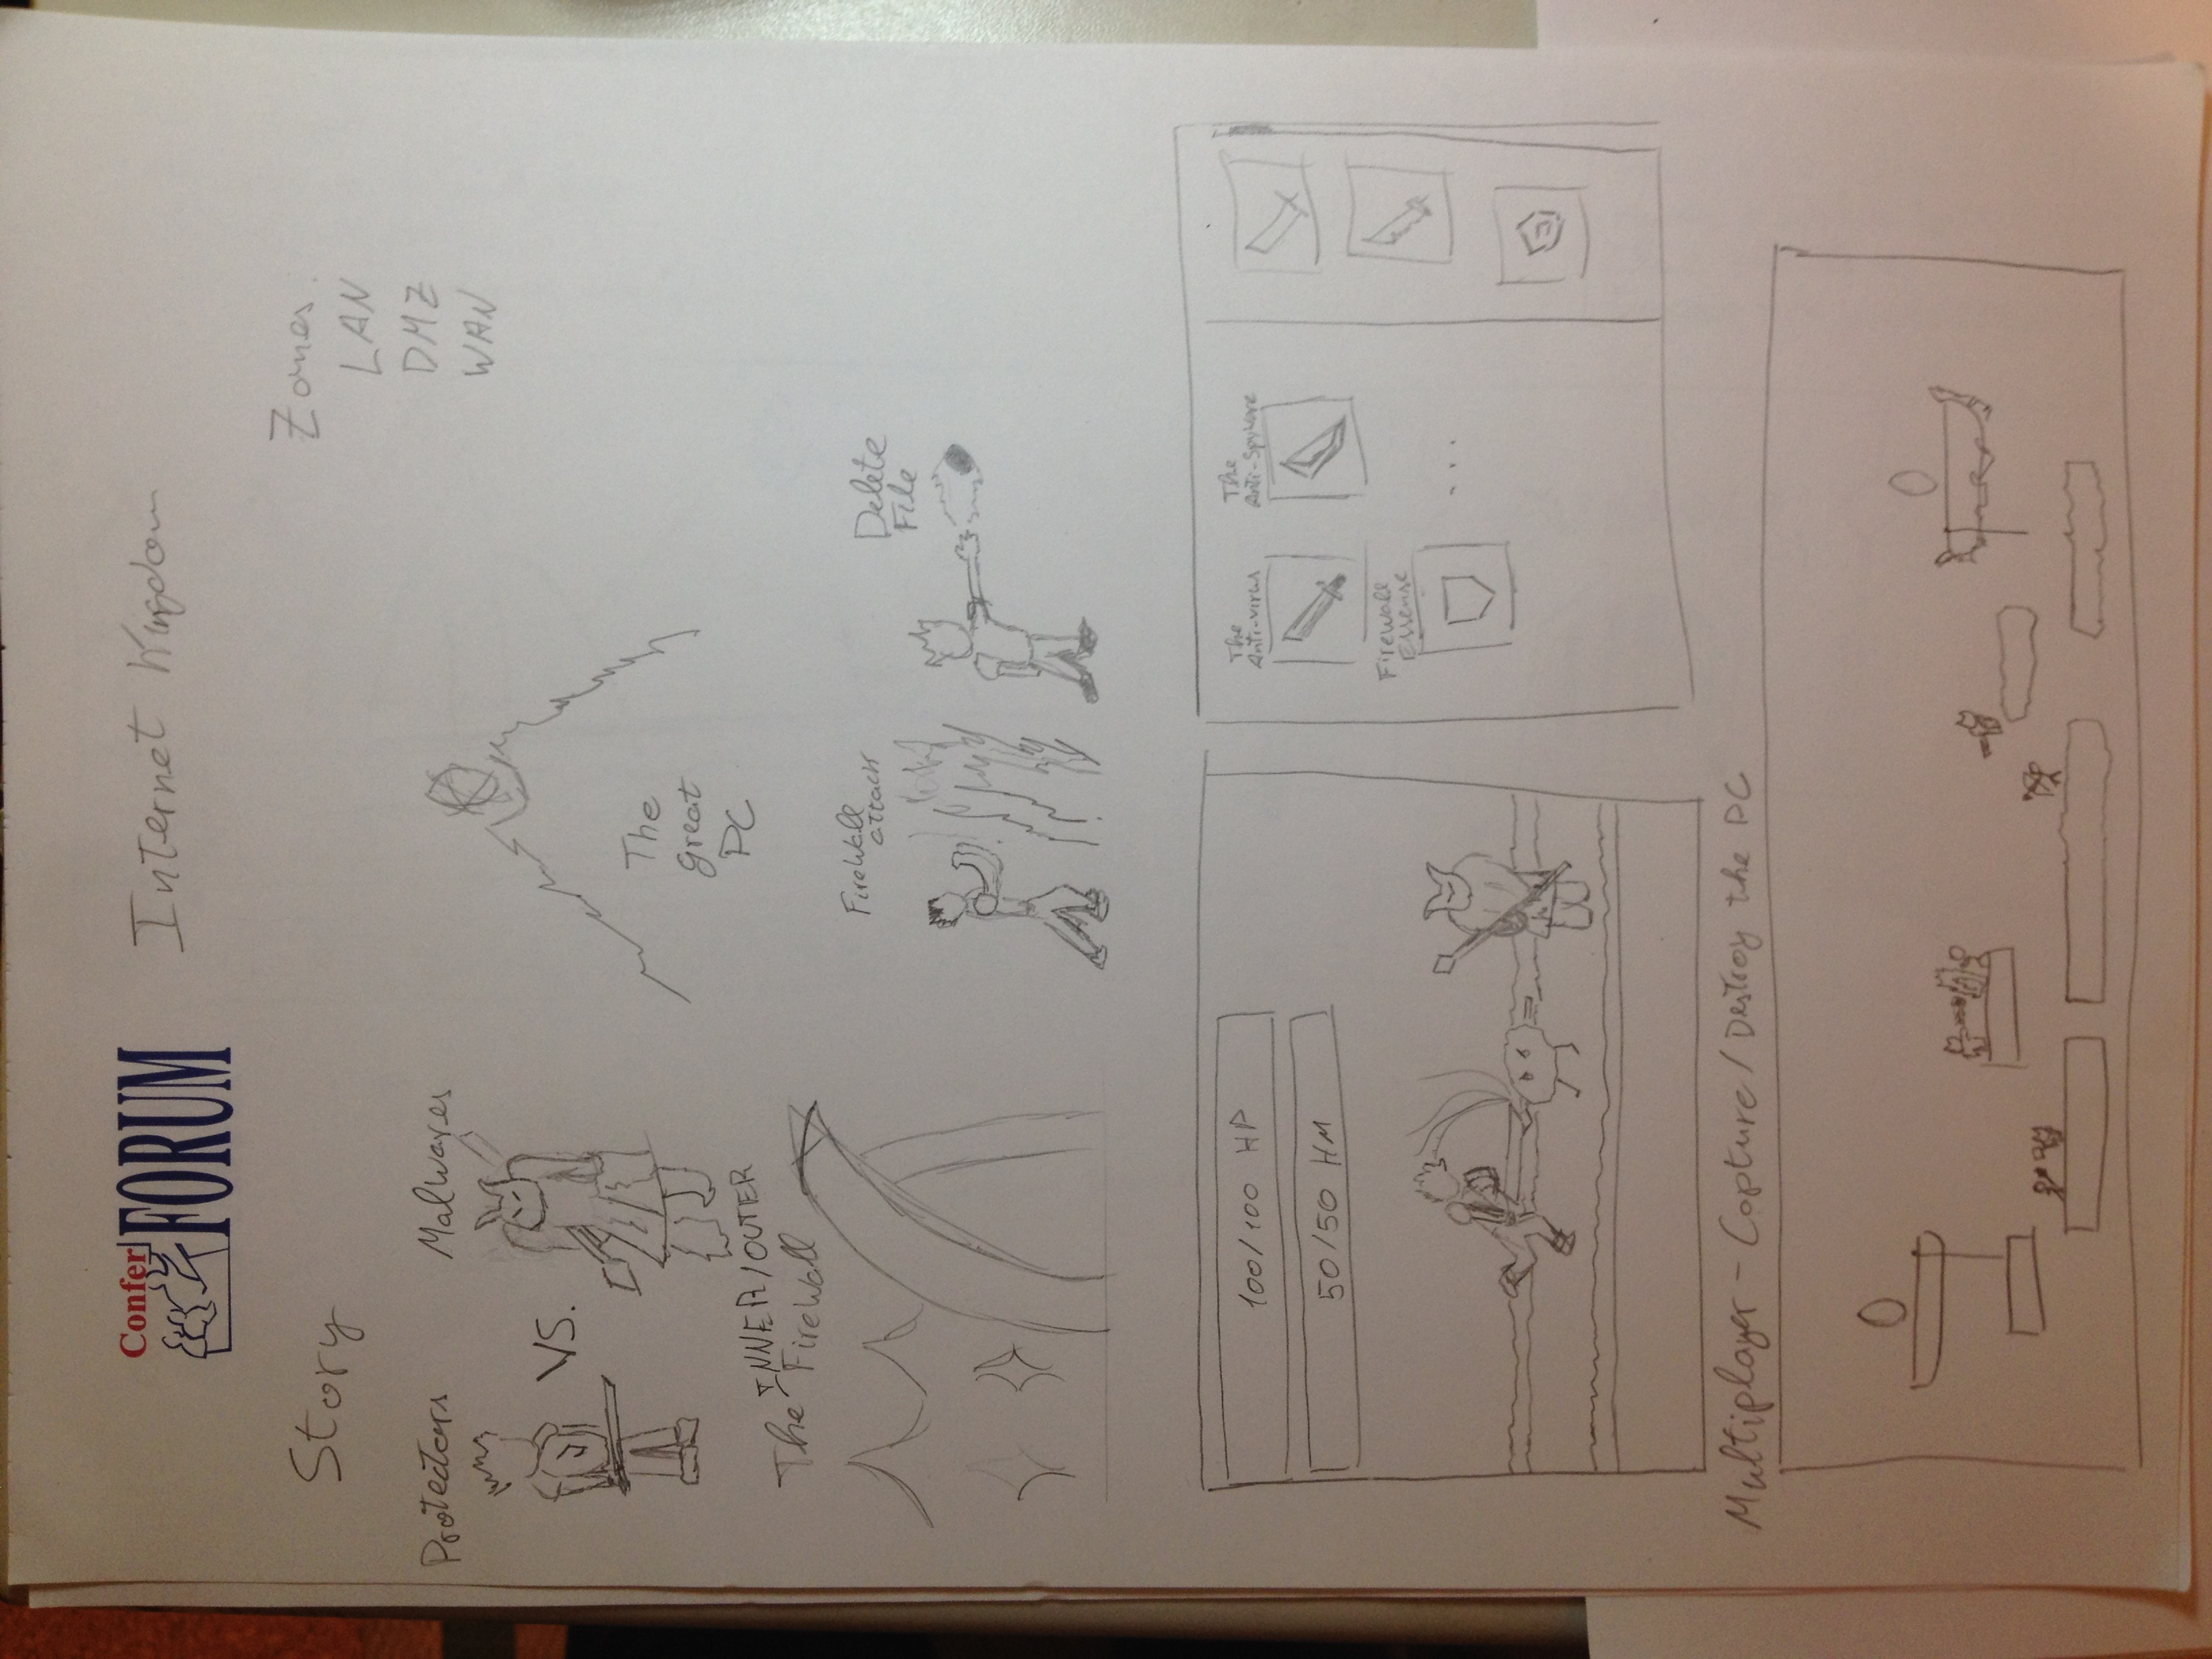 Confer
FORUM
Internet Kingdom
Story
Zones:
LAN
DMZ
WAN
Protectors
VS.
Malwares
The
Great
PC
The INNER/OUTER
Firewall
Firewall
attack
Delete
File
100/100 HP
50/50 HM
The
Anti-virus
The
Anti-Spyware
Firewall
Essense
...
Multiplayer - Capture/Destroy the PC